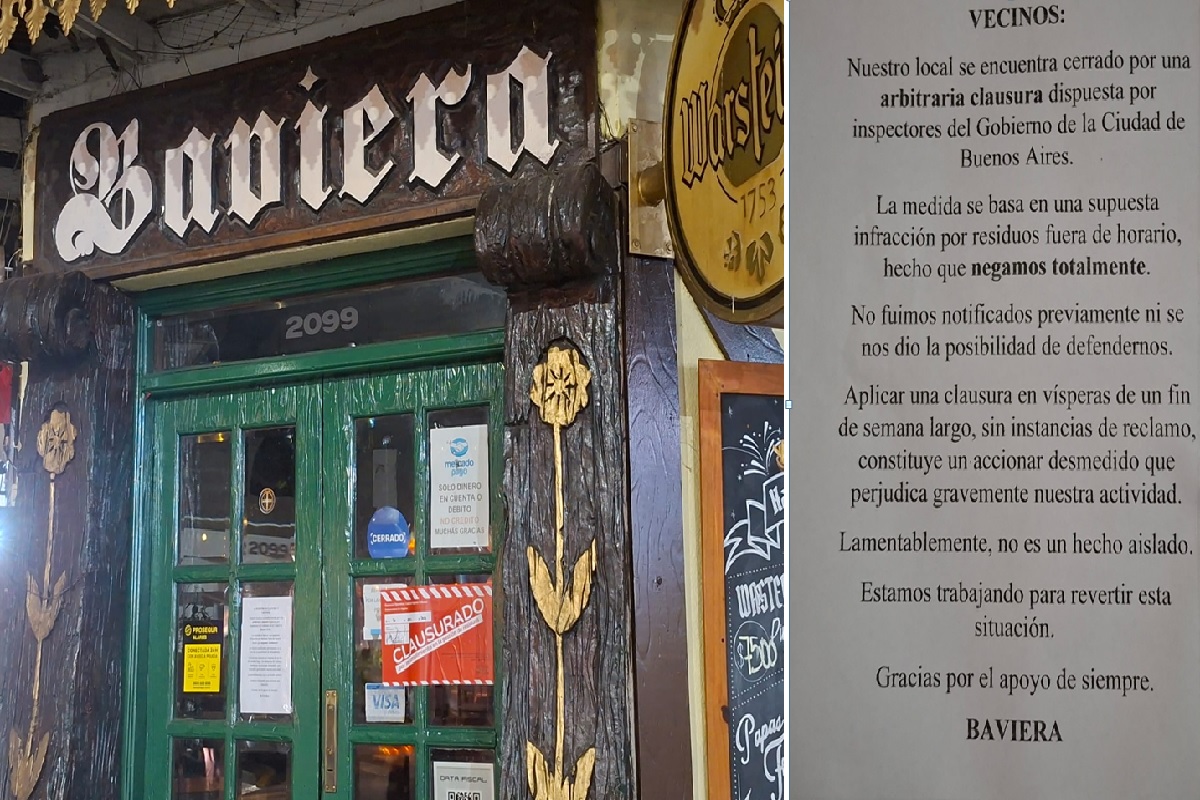 Baviera
Warstei
1753
2099
mercado
pago
SOLO DINERO
EN CUENTA O
DÉBITO
NO CRÉDITO
MUCHAS GRACIAS
CERRADO
2099
PROSEGUR
CLAUSURADO
VISA
DATA FISCAL
WARSTE
$7500
Papas
VECINOS:
Nuestro local se encuentra cerrado por una
arbitraria clausura dispuesta por
inspectores del Gobierno de la Ciudad de
Buenos Aires.
La medida se basa en una supuesta
infracción por residuos fuera de horario,
hecho que negamos totalmente.
No fuimos notificados previamente ni se
nos dio la posibilidad de defendernos.
Aplicar una clausura en vísperas de un fin
de semana largo, sin instancias de reclamo,
constituye un accionar desmedido que
perjudica gravemente nuestra actividad.
Lamentablemente, no es un hecho aislado.
Estamos trabajando para revertir esta
situación.
Gracias por el apoyo de siempre.
BAVIERA